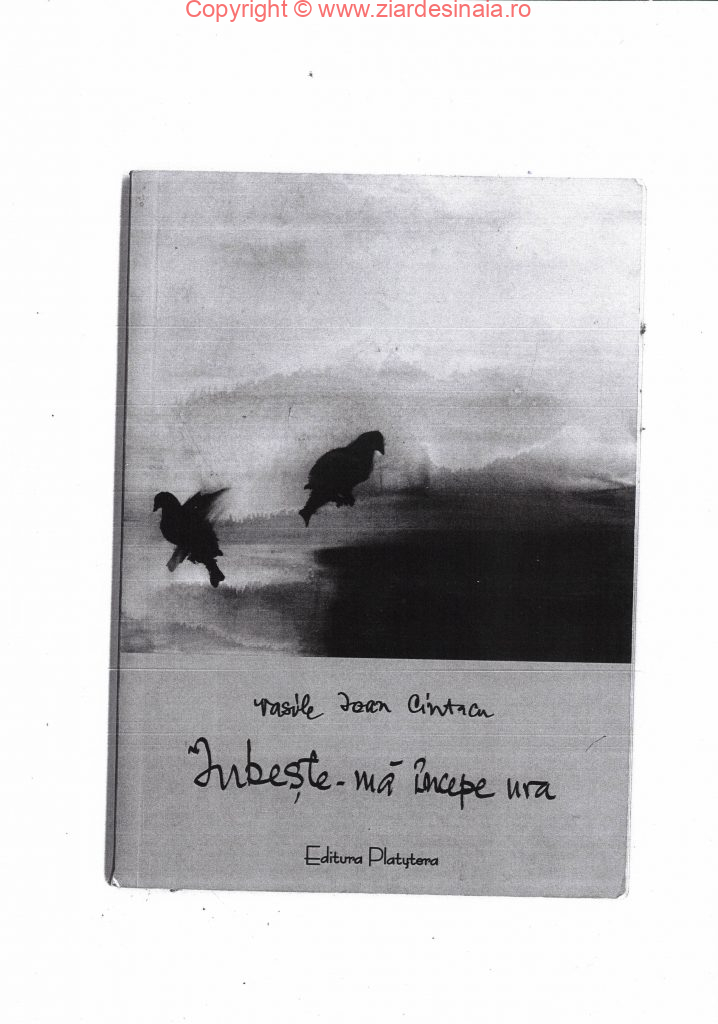 Copyright © www.ziardesinaia.ro
Vasile Ioan Ciutacu
Iubește-mă începe ura
Editura Platytera